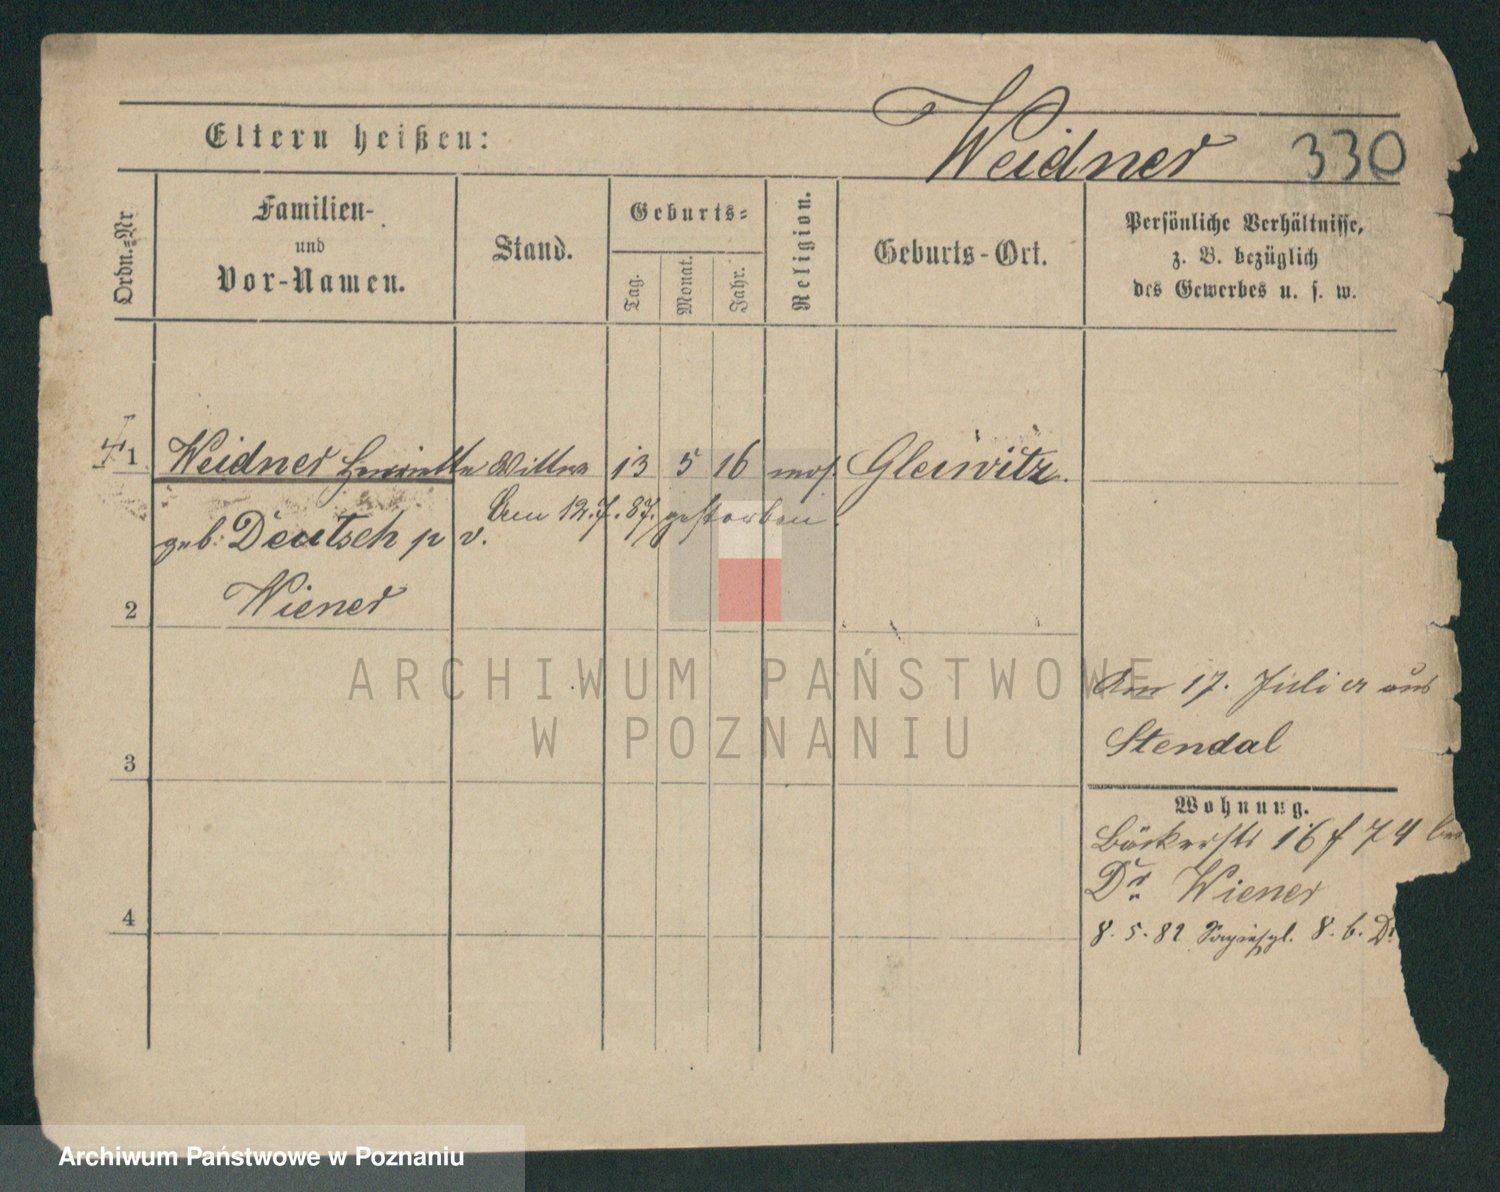 Weidner 330
Eltern heißen:
Ordn.-Nr
Familien-
und
Vor-Namen.
Stand.
Geburts-
Tag.
Monat.
Jahr.
Religion.
Geburts-Ort.
Persönliche Verhältnisse,
z. B. bezüglich
des Gewerbes u. s. w.
1 Weidner Henriette Wittwe 13 5 16 mos. Gleiwitz.
Am 12.7.87. gestorben.
geb. Deutsch p v.
2 Wiener
ARCHIWUM PAŃSTWOWE
W POZNANIU
Am 17. Juli cr aus
Stendal
3
Wohnung.
Bäckerstr 16 f 74 bei
Dr. Wiener
4
8. 5. 82 8. b. Dr
Archiwum Państwowe w Poznaniu